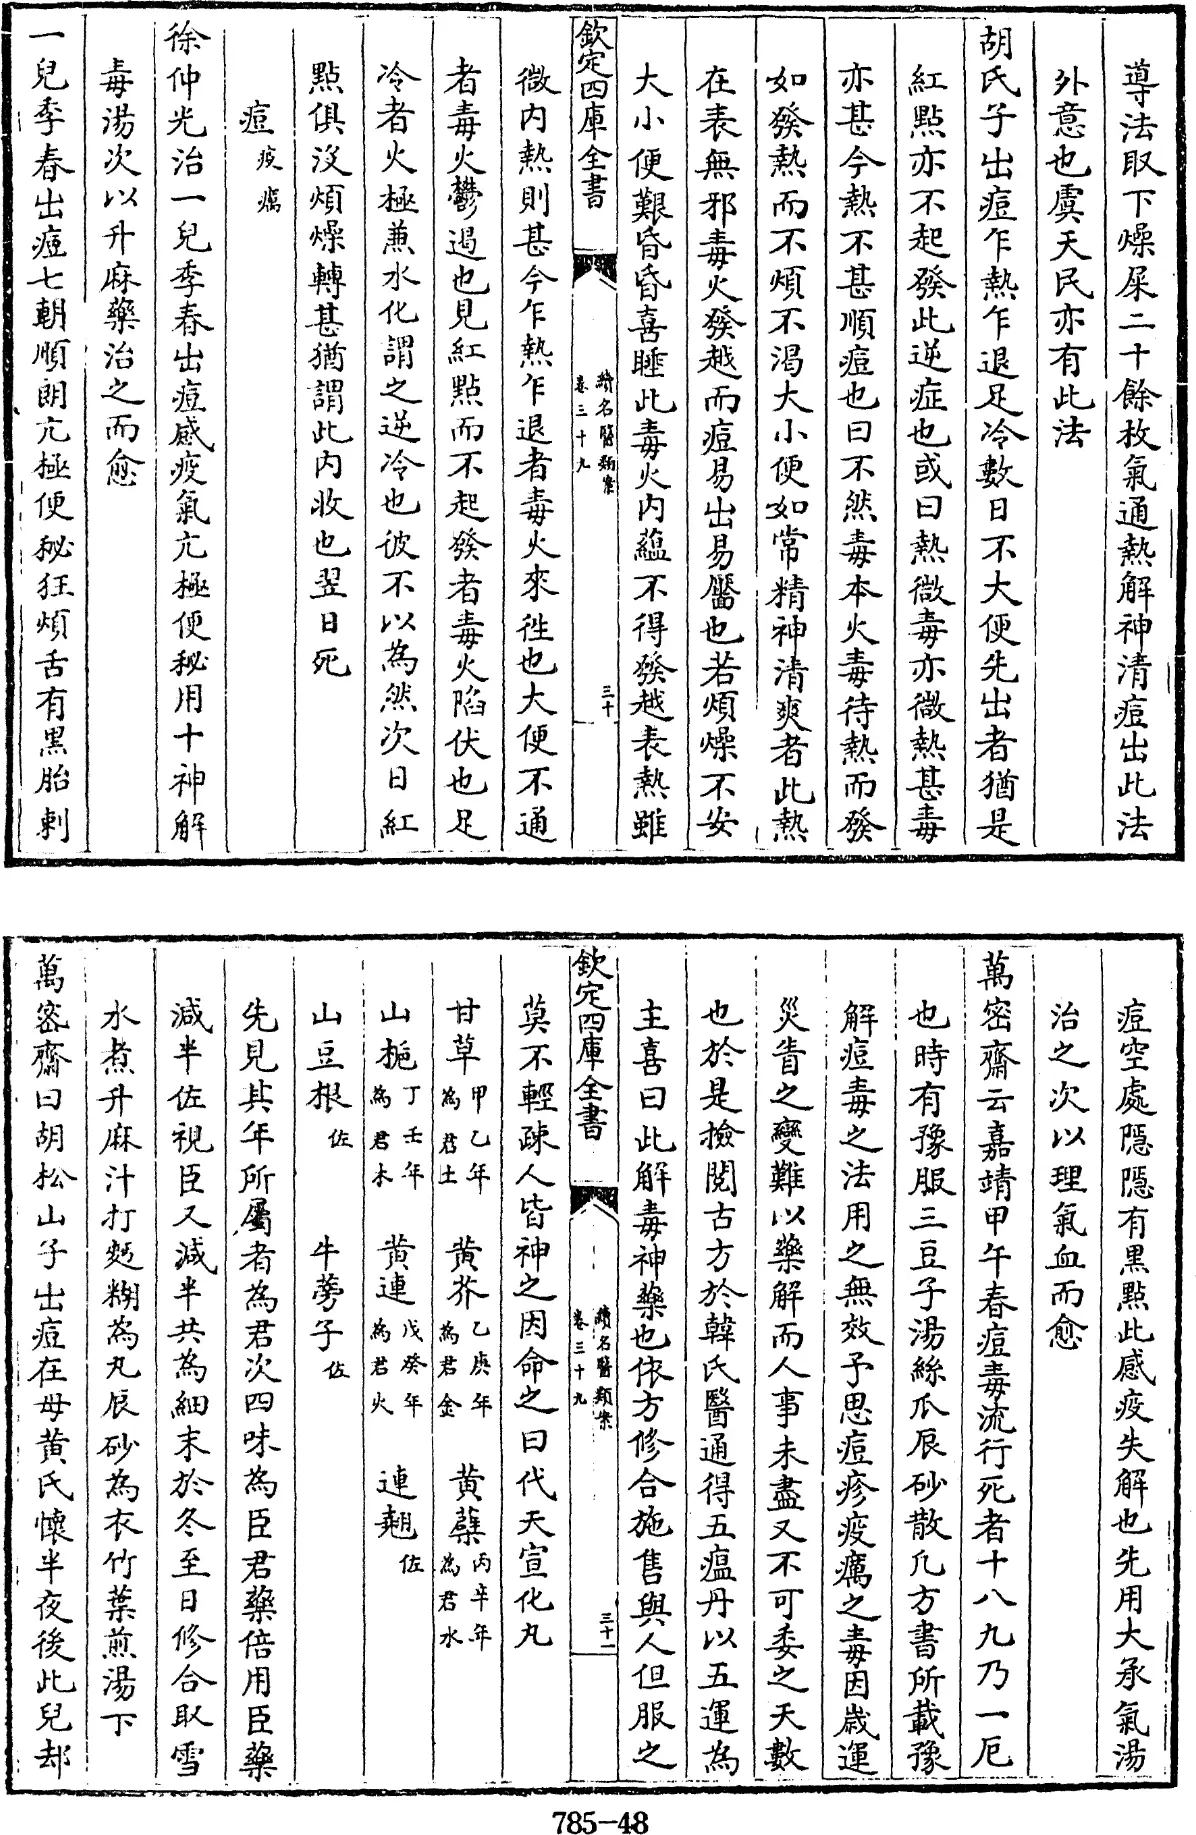 導法取下燥屎二十餘枚氣通熱解神清痘出此法
外意也虞天民亦有此法
胡氏子出痘乍熱乍退足冷數日不大便先出者猶是
紅點亦不起發此逆症也或曰熱微毒亦微熱甚毒
亦甚今熱不甚順痘也曰不然毒本火毒待熱而發
如發熱而不煩不渴大小便如常精神清爽者此熱
在表無邪毒火發越而痘易出易靨也若煩燥不安
大小便艱昏昏喜睡此毒火内蘊不得發越表熱雖
欽定四庫全書
續名醫類案
卷三十九
三十
微内熱則甚今乍熱乍退者毒火來徃也大便不通
者毒火鬱遏也見紅點而不起發者毒火陷伏也足
冷者火極兼水化謂之逆冷也彼不以為然次日紅
點俱沒煩燥轉甚猶謂此内收也翌日死
痘疫癘
徐仲光治一兒季春出痘感疫氣亢極便秘用十神解
毒湯次以升麻藥治之而愈
一兒季春出痘七朝順朗亢極便秘狂煩舌有黑胎剌
痘空處隱隱有黑點此感疫失解也先用大承氣湯
治之次以理氣血而愈
萬密齋云嘉靖甲午春痘毒流行死者十八九乃一厄
也時有豫服三豆子湯絲瓜辰砂散凢方書所載豫
解痘毒之法用之無效予思痘疹疫癘之毒因歲運
災眚之變難以藥解而人事未盡又不可委之天數
也於是撿閲古方於韓氏醫通得五瘟丹以五運為
主喜曰此解毒神藥也依方修合施售與人但服之
欽定四庫全書
續名醫類案
卷三十九
三十一
莫不輕疎人皆神之因命之曰代天宣化丸
甘草甲乙年為君土 黄芥乙庚年為君金 黄蘗丙辛年為君水
山梔丁壬年為君木 黄連戊癸年為君火 連翹佐
山豆根佐 牛蒡子佐
先見其年所屬者為君次四味為臣君藥倍用臣藥
減半佐視臣又減半共為細末於冬至日修合取雪
水煮升麻汁打麫糊為丸辰砂為衣竹葉煎湯下
萬密齋曰胡松山子出痘在母黄氏懷半夜後此兒却
785-48